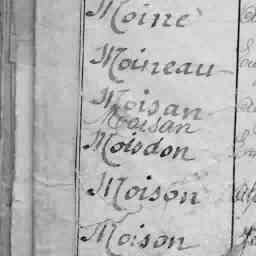 Moiné
Moineau
Moisan
Moisan
Moisdon
Moison
Moison